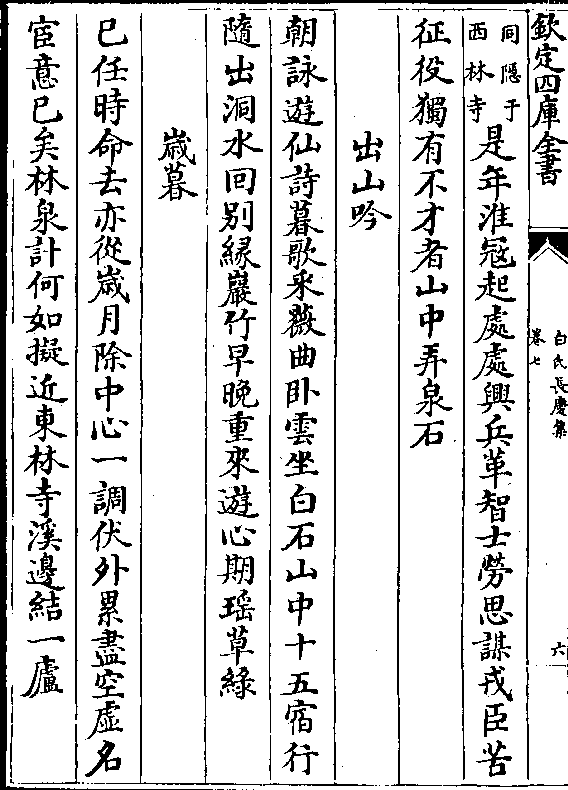 欽定四庫全書
白氏長慶集
卷七
六
同隠于
西林寺
是年淮冦起處處興兵革智士勞思謀戎臣苦
征役獨有不才者山中弄泉石
出山吟
朝詠遊仙詩暮歌采薇曲卧雲坐白石山中十五宿行
隨出洞水回别縁巖竹早晚重來遊心期瑶草綠
歳暮
已任時命去亦從歳月除中心一調伏外累盡空虚名
宦意已矣林泉計何如擬近東林寺溪邊結一廬